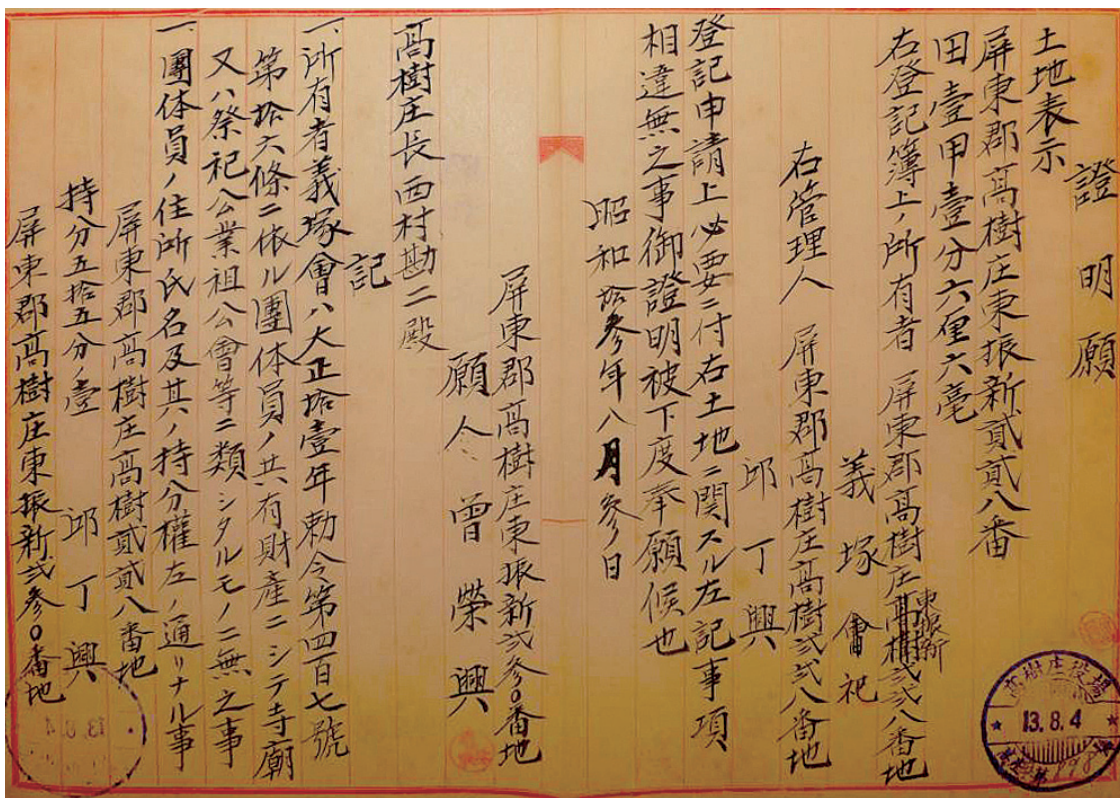 證明願
土地表示
屏東郡高樹庄東振新貳貳八番
田壹甲壹分六厘六毫
右登記簿上ノ所有者 屏東郡高樹庄東振新貳貳八番地
義塚會祀
右管理人 屏東郡高樹庄高樹貳貳八番地
邱丁興
登記申請上必要ニ付右土地ニ関スル左記事項
相違無之事御證明被下度奉願候也
昭和拾參年八月參日
屏東郡高樹庄東振新貳參〇番地
願人 曾榮興
高樹庄長西村勘二殿
記
一、所有者義塚會ハ大正拾壹年勅令第四百七號
第拾六條ニ依ル團体員ノ共有財產ニシテ寺廟
又ハ祭祀公業祖公會等ニ類シタルモノニ無之事
一、團体員ノ住所氏名及其ノ持分權左ノ通リナル事
屏東郡高樹庄高樹貳貳八番地
持分五拾五分ノ壹 邱丁興
屏東郡高樹庄東振新貳參〇番地
高樹庄役場
13.8.4